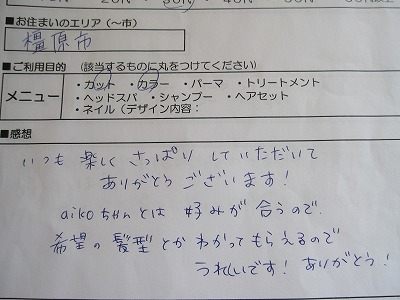 ■お住まいのエリア（～市）
橿原市
■ご利用目的 (該当するものに丸をつけてください)
メニュー
・カット ・カラー ・パーマ ・トリートメント
・ヘッドスパ ・シャンプー ・ヘアセット
・ネイル（デザイン内容：
■感想
いつも 楽しく さっぱり していただいて
ありがとう ございます！
aikoちゃんとは 好みが 合うので
希望の 髪型 とか わかって もらえるので
うれしいです！ ありがとう！